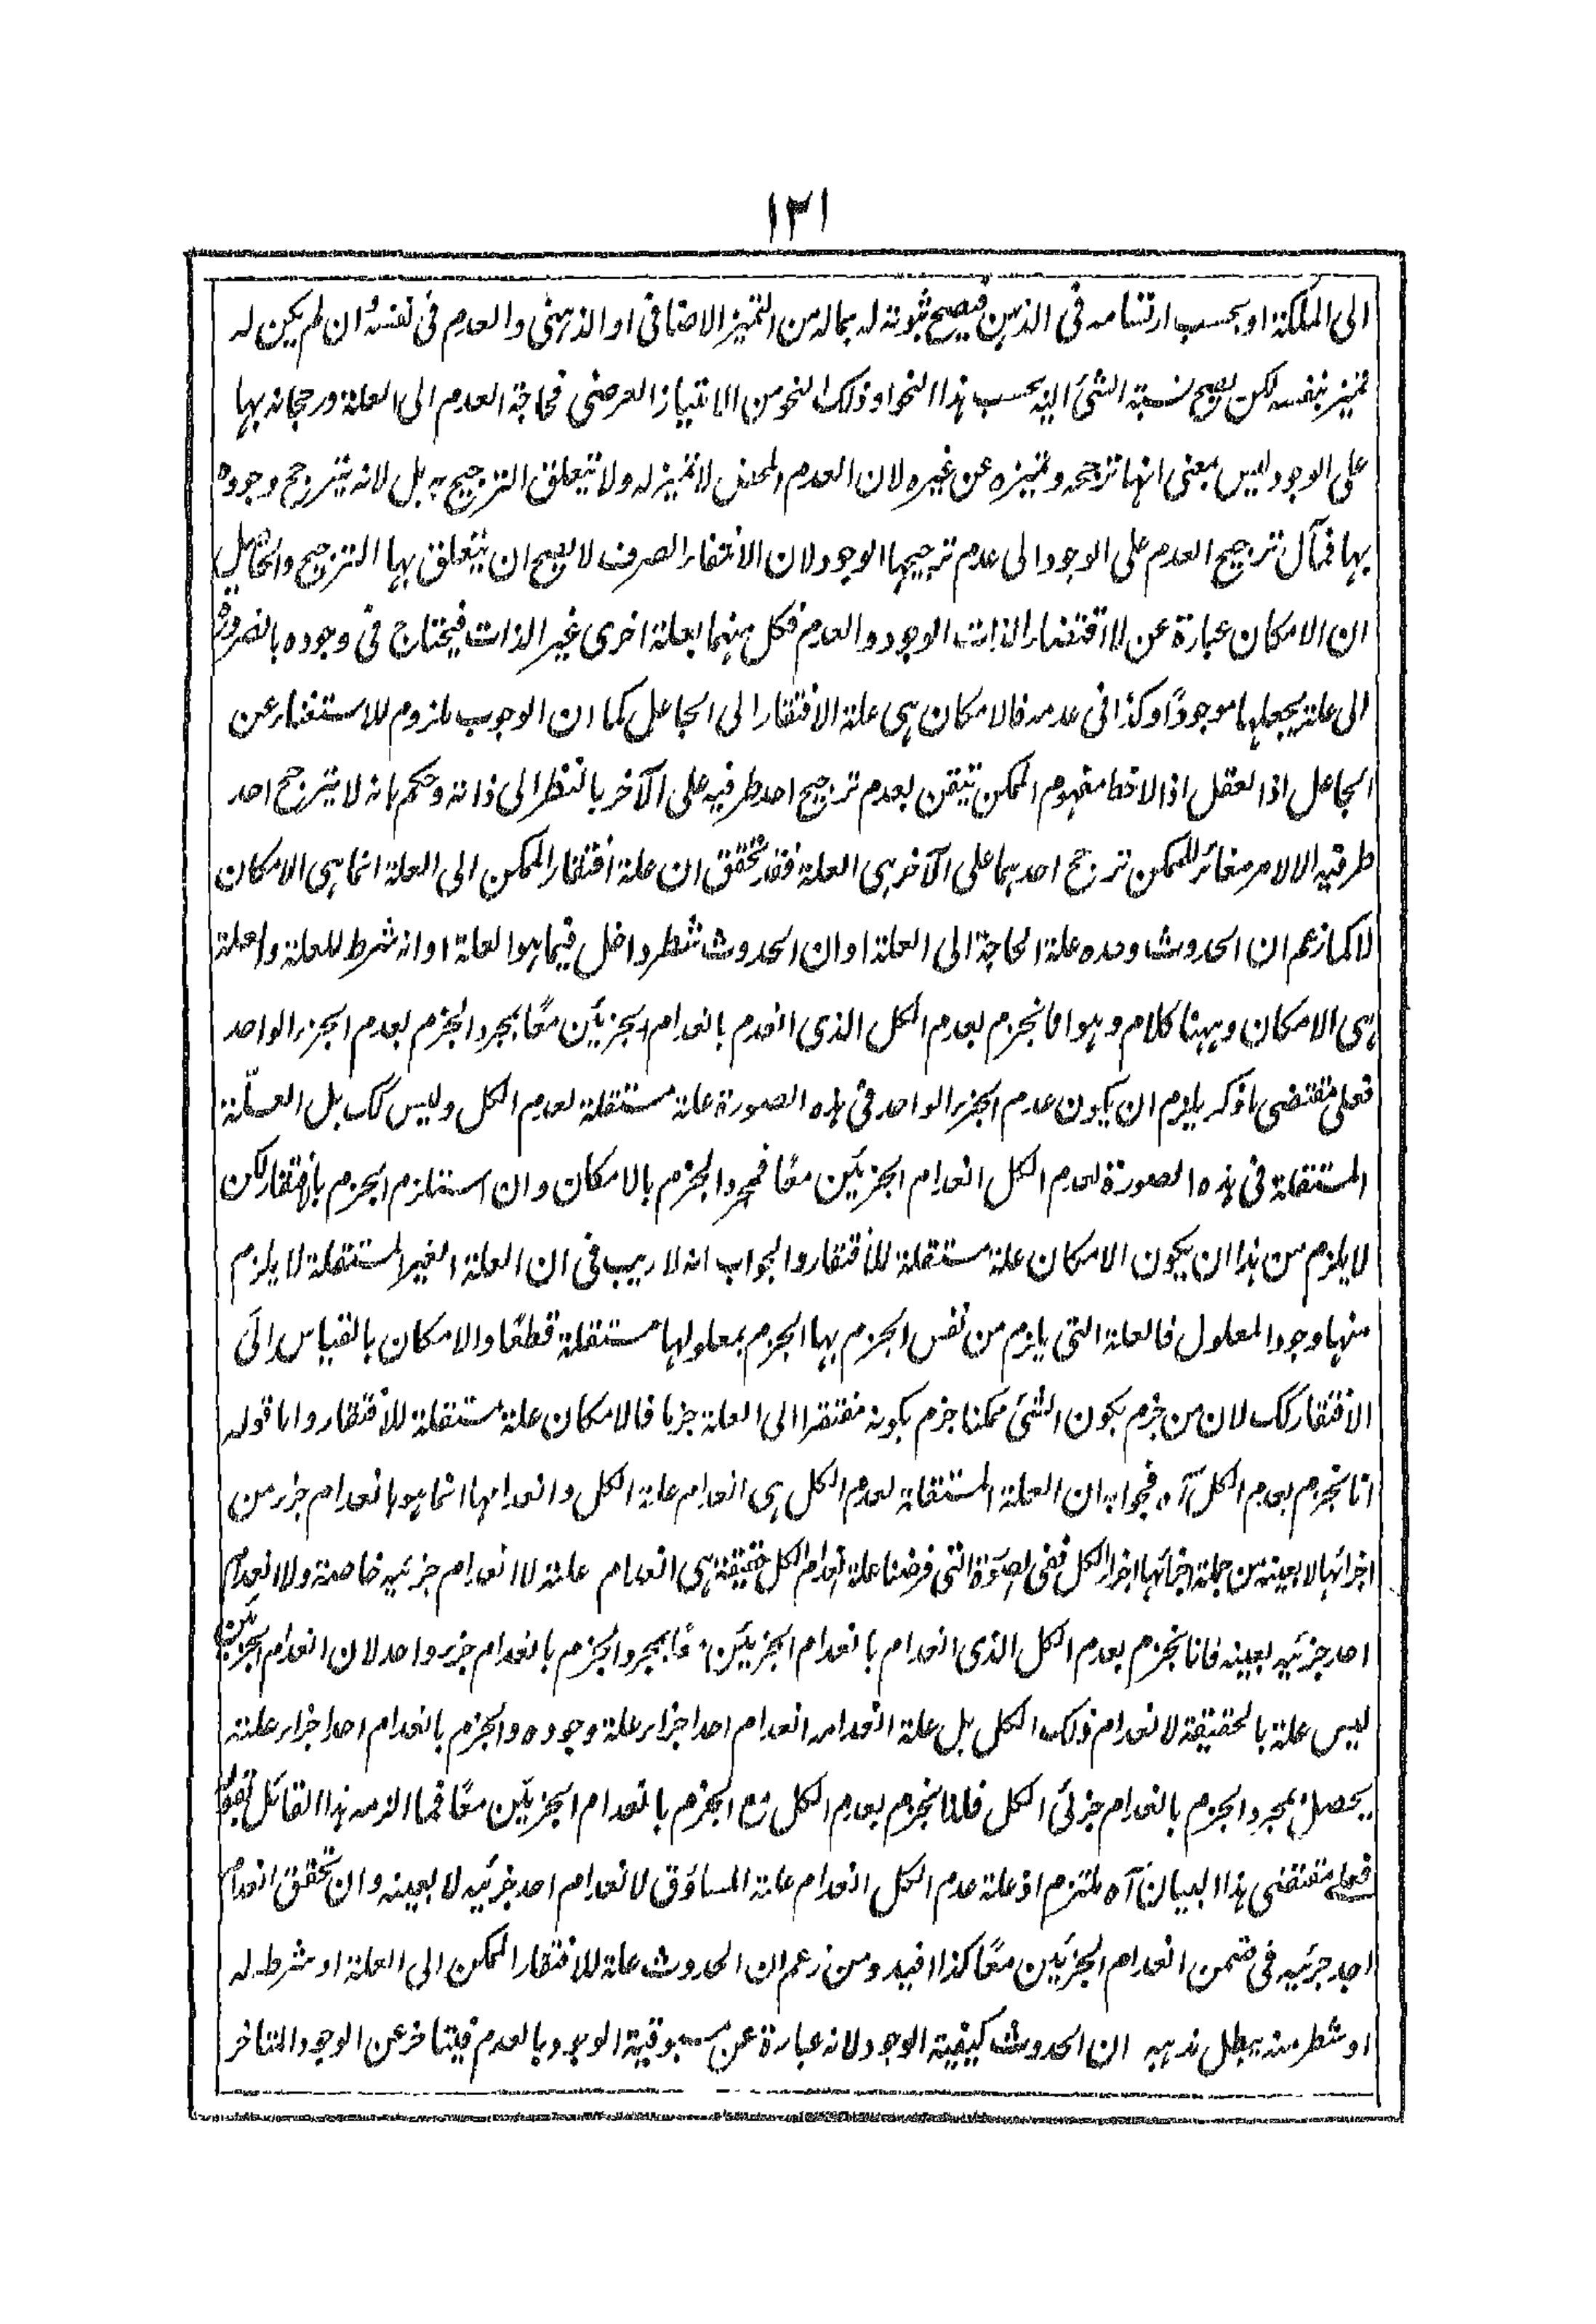 ١٣١
الى الملكة او بحسب ارتسامه فى الذهن فيصح ثبوته له بماله من التميز الاضافى او الذهنى والعدم فى نفسه وان لم يكن له
تميز بنفسه لكن يصح نسبة الشئ اليه بحسب هذا النحو او ذلك النحو من الامتياز العرضى فحاجة العدم الى العلة ورجحانه بها
على الوجود ليس بمعنى انها ترجحه وتميزه عن غيره لان العدم المحض لا تميز له ولا يتعلق الترجيح به بل لانه يترجح وجوده
بها فمآل ترجيح العدم على الوجود الى عدم ترجيحها الوجود لان الانتفاء الصرف لا يصح ان يتعلق بها الترجيح والحاصل
ان الامكان عبارة عن لا اقتضاء الذات الوجود والعدم فكل منهما بعلة اخرى غير الذات فيحتاج فى وجوده بالضرورة
الى علة يجعلها موجودًا وكذا فى عدمه فالامكان هى علة الافتقار الى الجاعل كما ان الوجوب ملزوم للاستغناء عن
الجاعل اذ العقل اذا لاحظ مفهوم الممكن تيقن بعدم ترجيح احد طرفيه على الآخر بالنظر الى ذاته وحكم بانه لا يترجح احد
طرفيه الا لامر مغائر للممكن ترجح احدهما على الآخر هى العلة فقد تحقق ان علة افتقار الممكن الى العلة انما هى الامكان
لا كما زعم ان الحدوث وحده علة الحاجة الى العلة او ان الحدوث شطر داخل فيما هو العلة او انه شرط للعلة والعلة
هى الامكان وههنا كلام وهو انا نجزم بعدم الكل الذى انعدم بانعدام الجزئين معًا بمجرد الجزم بعدم الجزء الواحد
فعلى مقتضى ما ذكر يلزم ان يكون عدم الجزء الواحد فى هذه الصورة علة مستقلة لعدم الكل وليس كك بل العلّة
المستقلة فى هذه الصورة لعدم الكل انعدام الجزئين معًا فمجرد الجزم بالامكان وان استلزم الجزم بالافتقار لكن
لا يلزم من هذا ان يكون الامكان علة مستقلة للافتقار والجواب انه لا ريب فى ان العلة الغير المستقلة لا يلزم
منها وجود المعلول فالعلة التى يلزم من نفس الجزم بها الجزم بمعلولها مستقلة قطعًا والامكان بالقياس الى
الافتقار كك لان من جزم بكون الشئ ممكنا جزم بكونه مفتقرا الى العلة جزما فالامكان علة مستقلة للافتقار واما قوله
انا نجزم بعدم الكل آه فجوابه ان العلة المستقلة لعدم الكل هى انعدام علة الكل وانعدامها انما هو بانعدام جزء من
اجزائها لا بعينه من جملة اجزائها اجزاء الكل ففى الصورة التى فرضنا علة انعدام الكل حقيقة هى انعدام علته لا انعدام جزئيه خاصة ولا انعدام
احد جزئيه بعينه فانا نجزم بعدم الكل الذى انعدام بانعدام الجزئين معًا بمجرد الجزم بانعدام جزء واحد لان انعدام الجزئين
ليس علة بالحقيقة لانعدام ذلك الكل بل علة انعدامه انعدام احد اجزاء علة وجوده والجزم بانعدام احد اجزاء علته
يحصل بمجرد الجزم بانعدام جزئى الكل فلذا نجزم بعدم الكل مع الجزم بانعدام الجزئين معًا فما الزمه هذا القائل بقوله
فعلى مقتضى هذا البيان آه ملتزم اذ علة عدم الكل انعدام علته المساوق لانعدام احد جزئيه لا بعينه وان تحقق انعدام
احد جزئيه فى ضمن انعدام الجزئين معًا كذا افيد ومن زعم ان الحدوث علة للافتقار الممكن الى العلة او شرط له
او شطر منه يبطل مذهبه ان الحدوث كيفية الوجود لانه عبارة عن مسبوقية الوجود بالعدم فيتاخر عن الوجود المتاخر